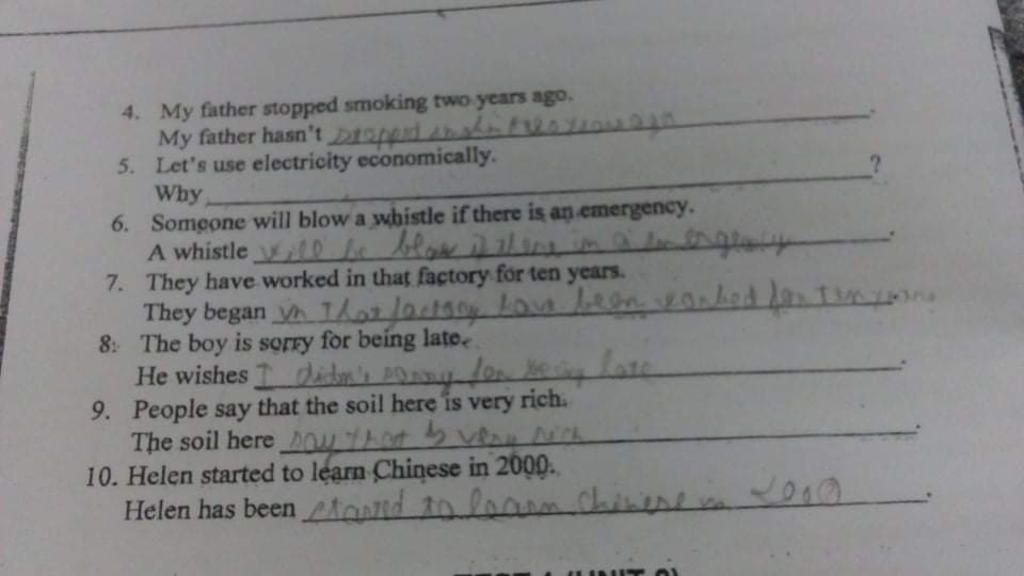 4. My father stopped smoking two years ago.
My father hasn't stopped smokin two years ago.
5. Let's use electricity economically.
Why ?
6. Someone will blow a whistle if there is an emergency.
A whistle will be blow if there im a emergency.
7. They have worked in that factory for ten years.
They began in that factory have been worked for ten years
8. The boy is sorry for being late.
He wishes I didn't sorry for being late.
9. People say that the soil here is very rich.
The soil here say that is very rich.
10. Helen started to learn Chinese in 2000.
Helen has been started to learn Chinese in 2000.